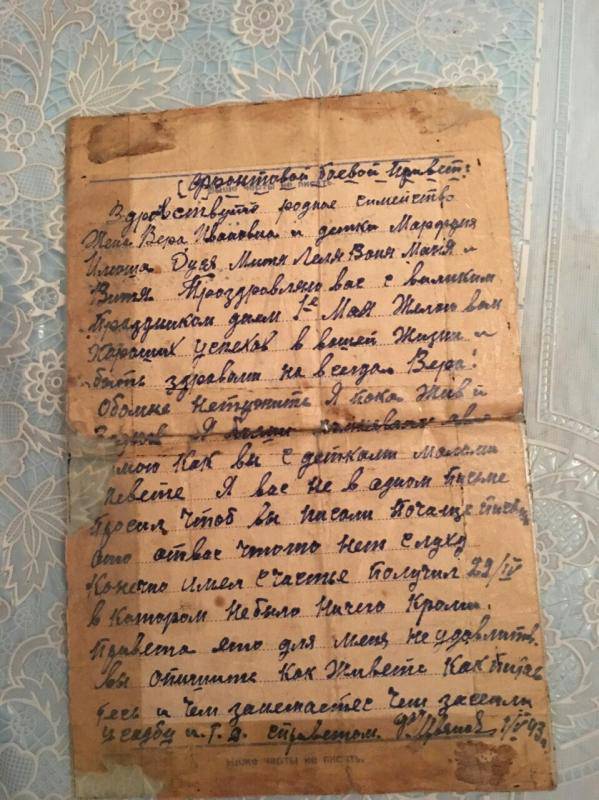 Фронтовой боевой привет:
выше черты не писать
Здровствуйте родное симейство
Жена Вера Ивановна и детки Марфуня
Илюша Дуня Митя Леля Воня Маня и
Витя Проздровляю вас с великим
Празднком днем 1е Мая Желою вам
Хароших успехов в вашей Жизни и
быть здровыми на всегда. Вера!
Обомне нетужить Я пока Жив и
Здоров Я
мою Как вы с детками малыми
Я вас не в адном Письме
Просил чтоб вы писали Почаще
ото отвас чтото нет слуху
Конечно имел счастье получил 22/IV
в Катором не было ничего Кроми.
Привета ето для меня не удовлитв.
вы опишите Как Живете Как Питае
тесь и чем занемаетес Чем засеели
усадбу и.Т.Д. с приветом. 1/V 43 г
Ниже черты не писать.